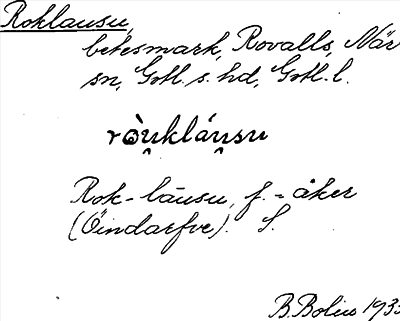 Roklausu,
betesmark, Rovalls, När
sn, Gotl. s. hd, Gotl. l.
ròu̯kláu̯su
Rok-lausu, f. - åker
(Öindarfve). S.
B. Bolin 193